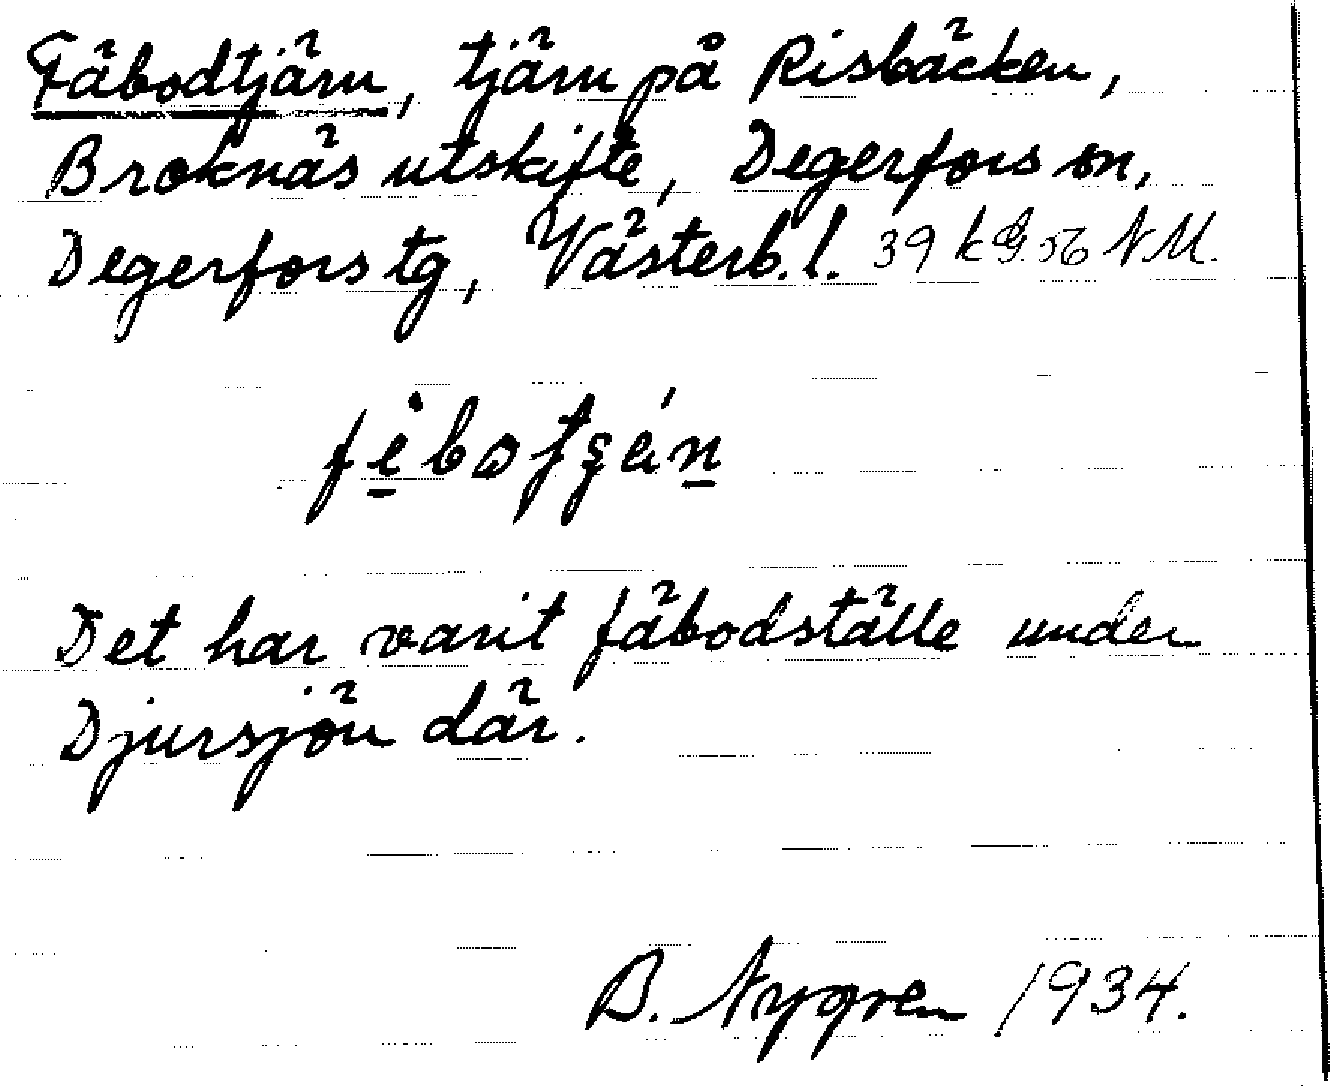 Fäbodtjärn, tjärn på Risbäcken,
Broknäs utskifte, Degerfors sn,
Degerfors tg, Västerb. l. 39 k G. 56 N M.
Det har varit fäbodställe under
Djursjön där.
B. Nygren 1934.